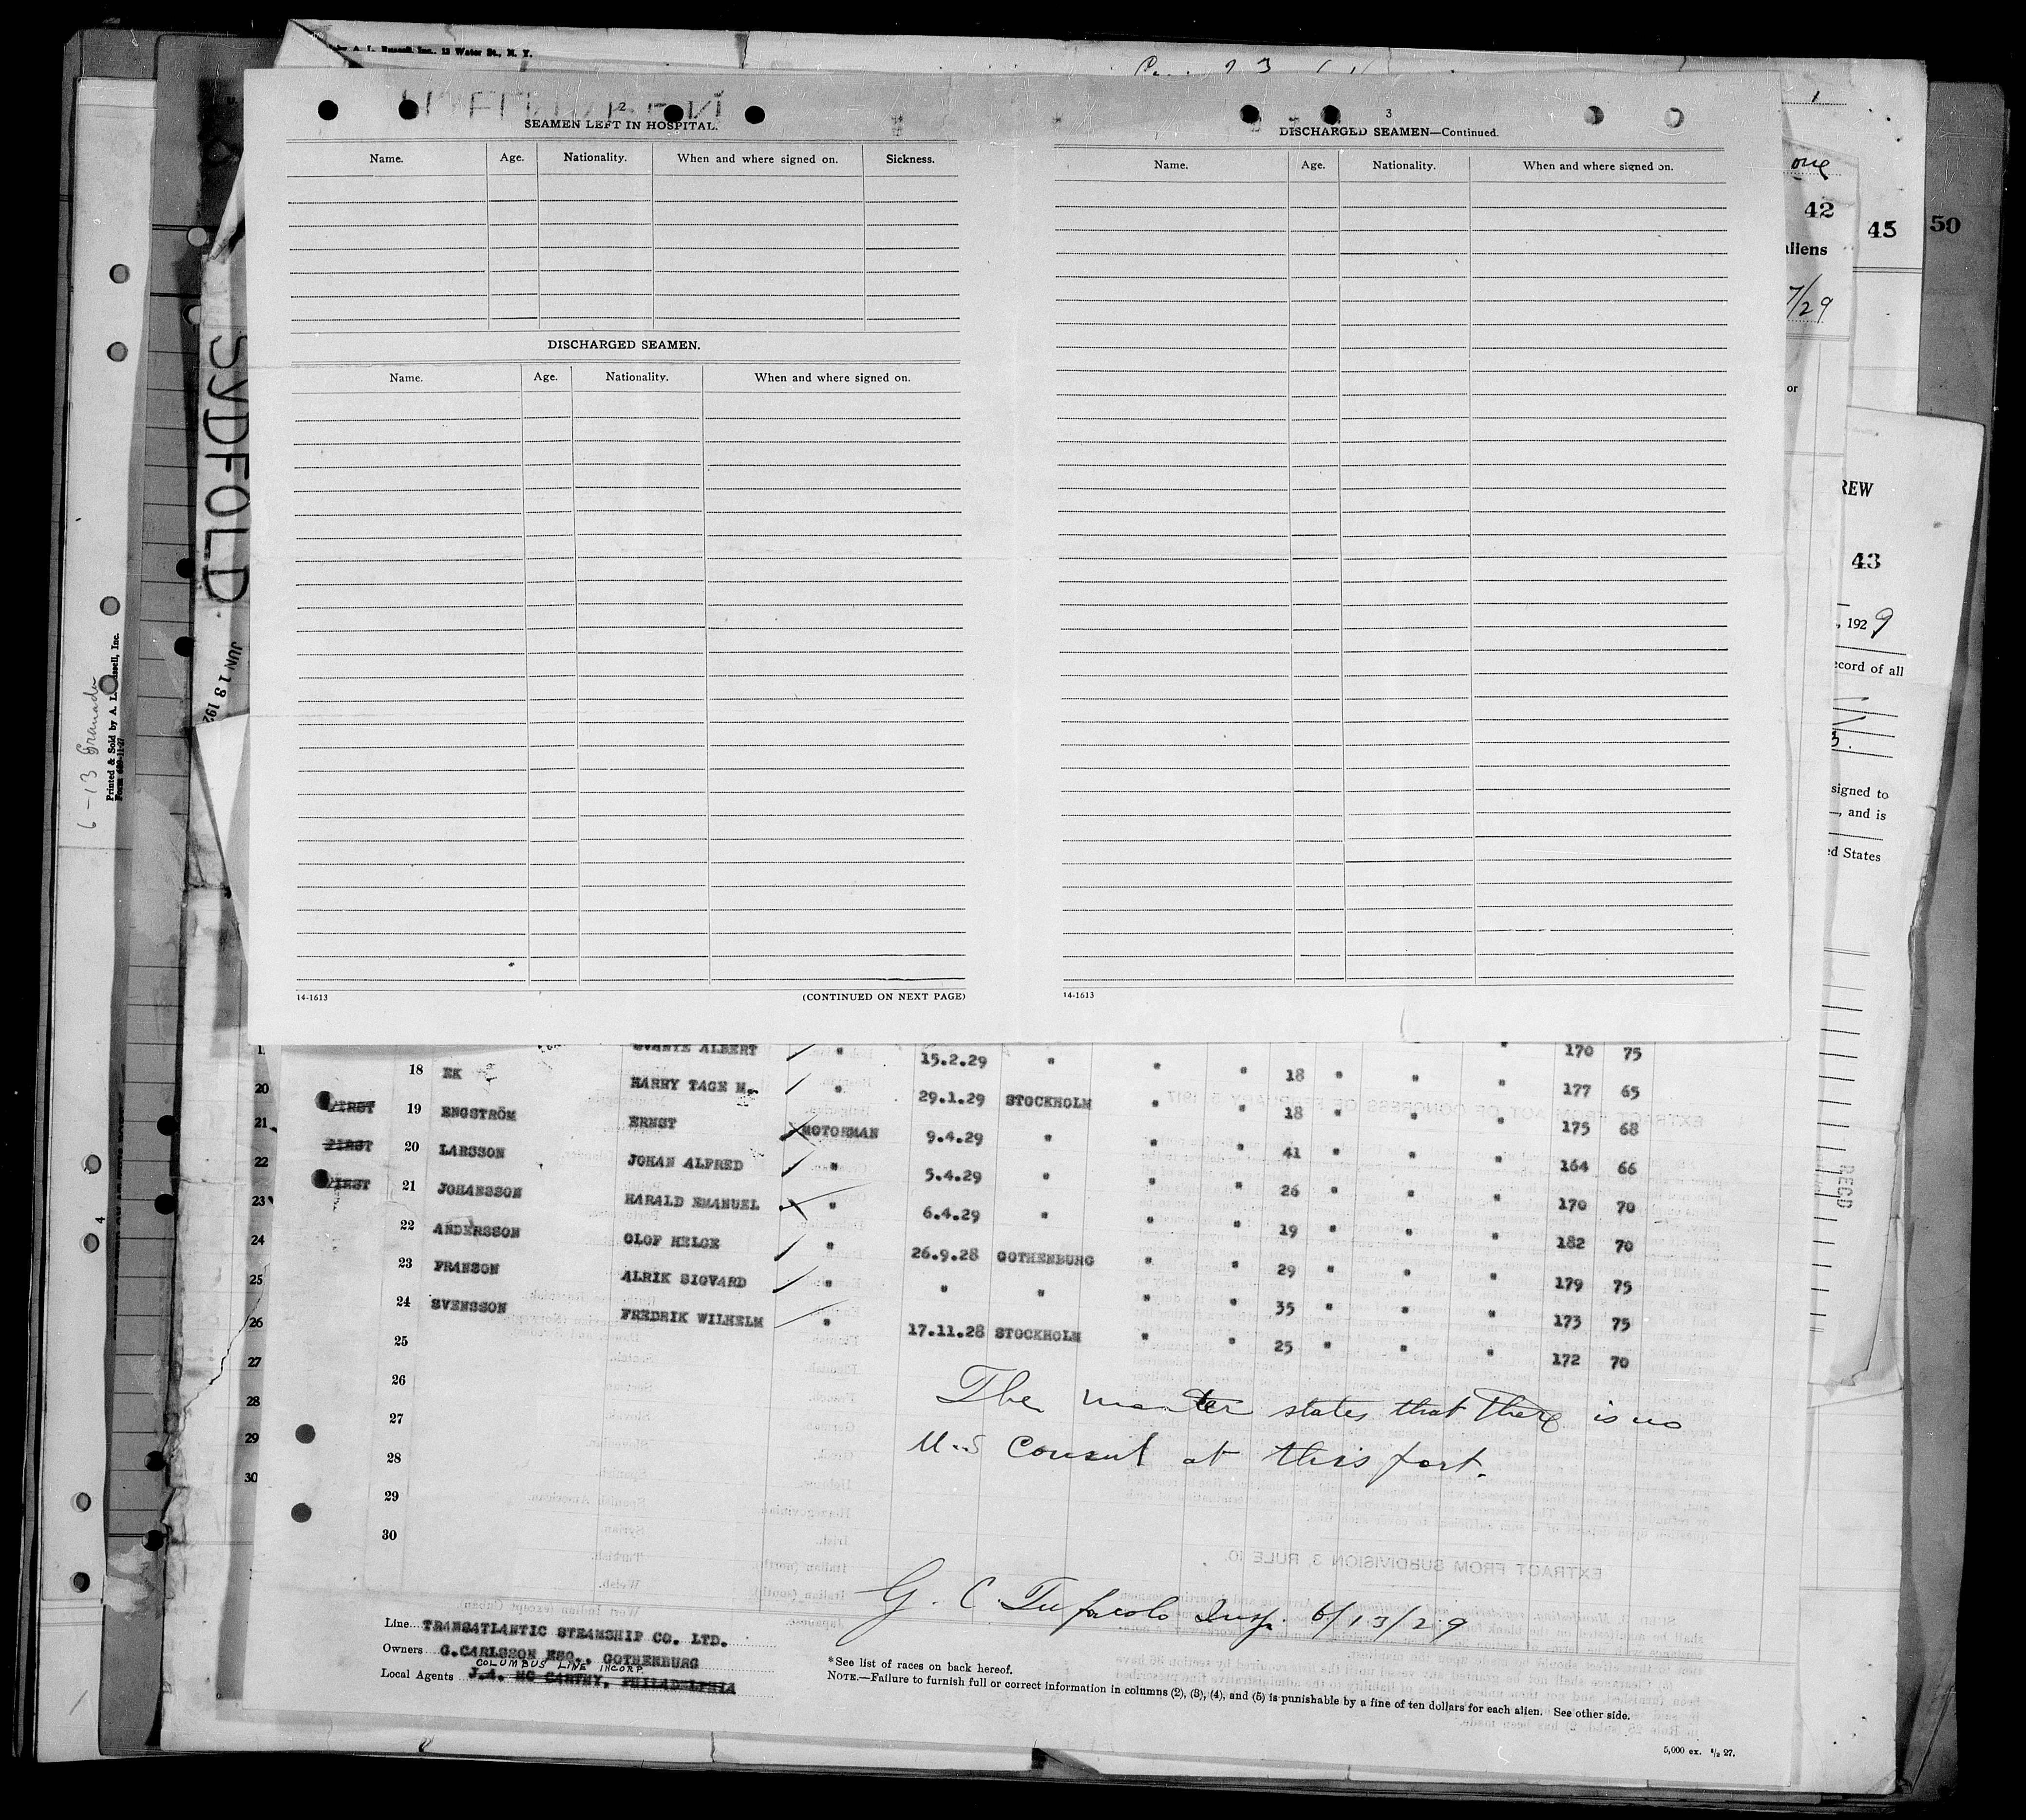 by A. L. Russell, Inc., 13 Water St., N. Y.
2
SEAMEN LEFT IN HOSPITAL.
Name. Age. Nationality. When and where signed on. Sickness.
DISCHARGED SEAMEN.
Name. Age. Nationality. When and where signed on.
14-1613 (CONTINUED ON NEXT PAGE)
3
DISCHARGED SEAMEN—Continued.
Name. Age. Nationality. When and where signed on.
14-1613
one
42
45
50
aliens
7/29
or
REW
43
, 1929
ecord of all
signed to
, and is
ed States
RECD
SYDFOLD
JUN 13 192
6-13 Granada
Printed & Sold by A. L. Russell, Inc.
4
SVANTE ALBERT " 15.2.29 " " " 18 " " " 170 75
18 EK HARRY TAGE M. " 29.1.29 STOCKHOLM " " 18 " " " 177 65
FIRST 19 ENGSTRÖM ERNST MOTORMAN 9.4.29 " " " 41 " " " 175 68
FIRST 20 LARSSON JOHAN ALFRED " 5.4.29 " " " 26 " " " 164 66
FIRST 21 JOHANSSON HARALD EMANUEL " 6.4.29 " " " 19 " " " 170 70
22 ANDERSSON OLOF HELGE " 26.9.28 GOTHENBURG " " 29 " " " 182 70
23 FRANSON ALRIK SIGVARD " " " " " 35 " " " 179 75
24 SVENSSON FREDRIK WILHELM " 17.11.28 STOCKHOLM " " 25 " " " 173 75
25 172 70
26
27
28
29
30
20
21
22
23
24
25
26
27
28
29
30
The master states that there is no
U.S Consul at this port.
EXTRACT FROM ACT OF CONGRESS OF FEBRUARY 5, 1917
EXTRACT FROM SUBDIVISION 3, RULE 10.
G. C. Insp. 6/13/29
Line TRANSATLANTIC STEAMSHIP CO. LTD.
Owners G.CARLSSON ESQ., GOTHENBURG
COLUMBUS LINE INCORP.
Local Agents J.A. MC CARTHY, PHILADELPHIA
*See list of races on back hereof.
NOTE.—Failure to furnish full or correct information in columns (2), (3), (4), and (5) is punishable by a fine of ten dollars for each alien. See other side.
5,000 ex. 27.